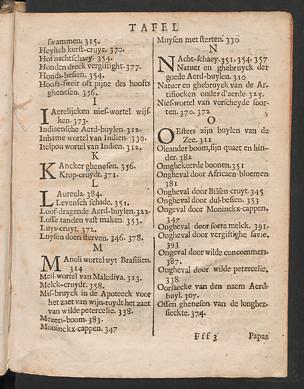 TAFEL
swammen. 315.
Heylich kerst-cruyt. 370.
Hof nachtschaey. 354.
Honden dreck vergiftight. 377.
Honds-besien. 354.
Hooft-sweir oft pijne des hoofts
ghenesen. 356.
I
IAerelijcken nies-wortel wijs-
ken. 373.
Indiaensche Aerd-buylen. 312.
Inhame wortel van Indien. 330.
Itelpou wortel van Indien. 312.
K
KAncker ghenesen. 356.
Krop-cruydt. 371.
L
LAureola. 384.
Levensch schade. 351.
Loof-dragende Aerd-buylen. 322.
Losse tanden vast maken. 353.
Luys-cruyt. 372.
Luysen doen sterven. 346. 378.
M
MAnoli wortel uyt Brasilien.
314
Meil-wortel van Maledive. 313.
Melck-cruydt. 358.
Mis-bruyck in de Apoteeck voor
het zaet van wijn-ruydt het zaet
van wilde petercelie. 338.
Mezeri-boom. 383.
Moninckx-cappen. 347
Muysen met sterten. 330
N
NAcht-schaey. 351. 354. 357
Natuer en ghebruyck der
goede Aerd-buylen. 310
Natuer en ghebruyck van de Ar-
tisiocken onder d'aerde 325.
Nies-wortel van verscheyde soor-
ten. 370. 372
O
OEsters zijn buylen van de
Zee. 311
Oleander boom, sijn quaet en hin-
der. 382
Omghekeerde boonen. 351
Ongheval door Africaen-bloemen
381
Ongheval door Bilsen-cruyt. 345
Ongheval door dul-besien. 353
Ongheval door Moninckx-cappen.
347
Ongheval door soete melck. 391.
Ongheval door vergiftighe savie.
393
Ongheval door wilde concommers.
387.
Ongheval door wilde petercelie.
338
Oorsaecke van den naem Aerd-
buyl. 307.
Ossen ghenesen van de longher-
sieckte. 374.
Fff 3
Papas